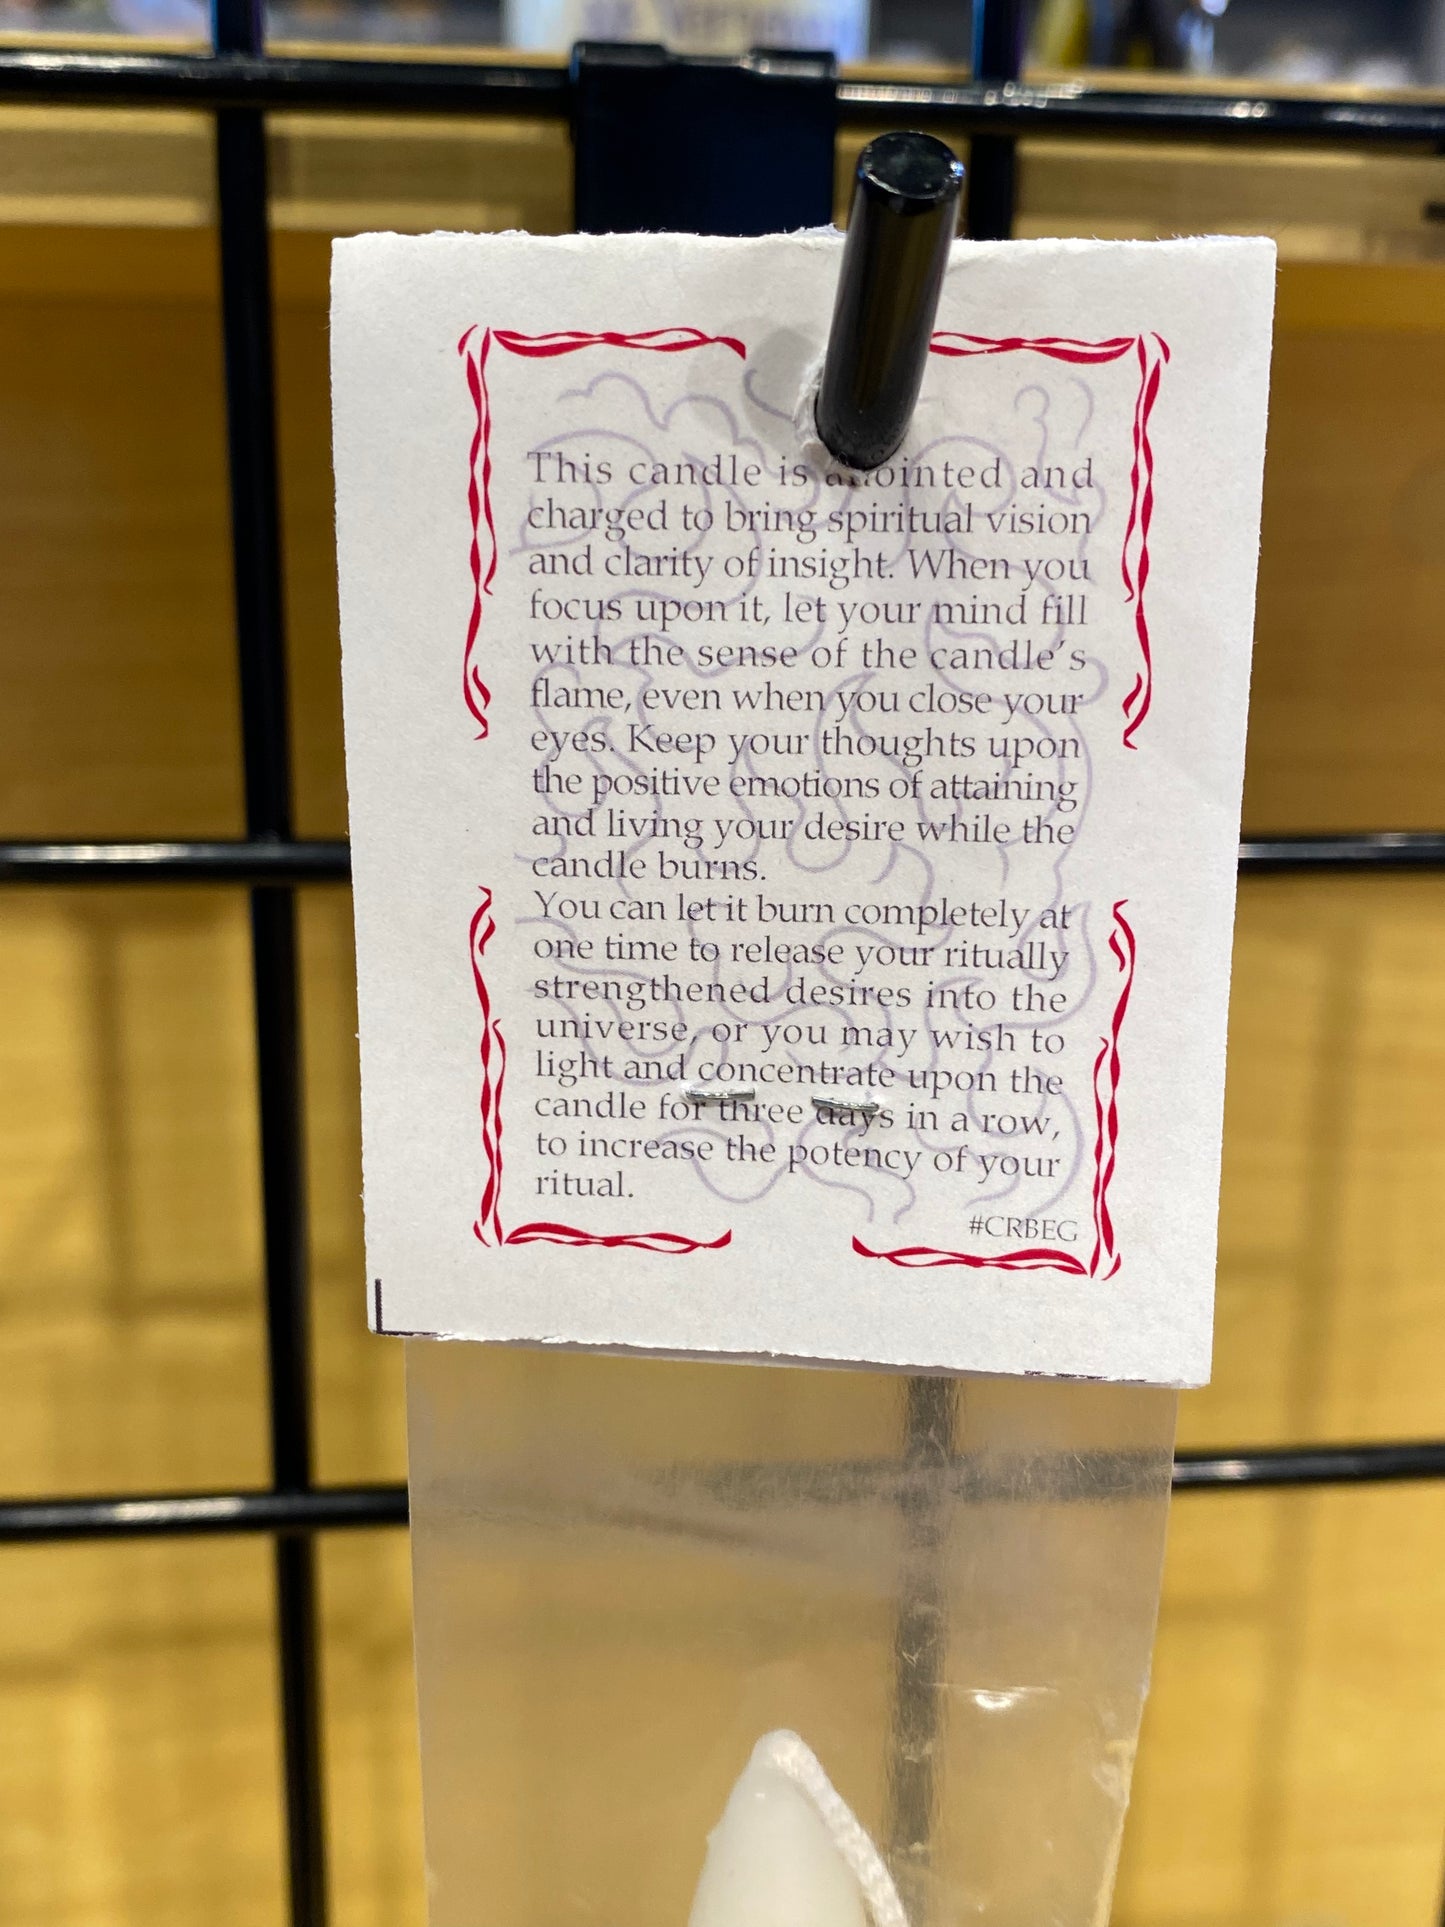 This candle is anointed and
charged to bring spiritual vision
and clarity of insight. When you
focus upon it, let your mind fill
with the sense of the candle's
flame, even when you close your
eyes. Keep your thoughts upon
the positive emotions of attaining
and living your desire while the
candle burns.
You can let it burn completely at
one time to release your ritually
strengthened desires into the
universe, or you may wish to
light and concentrate upon the
candle for three days in a row,
to increase the potency of your
ritual.
#CRBEG